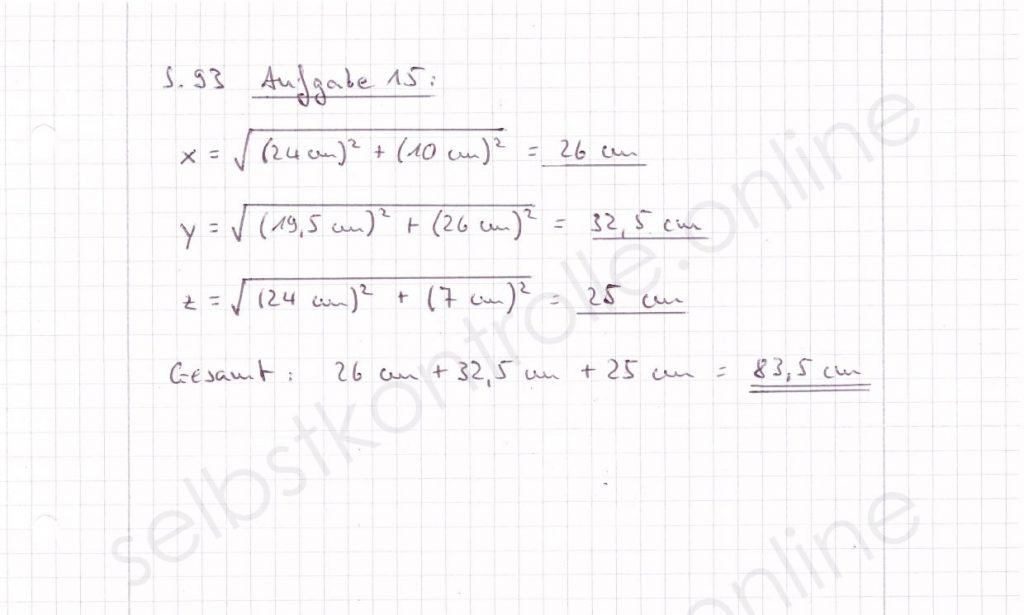 S. 93 Aufgabe 15:
x = √(24 cm)² + (10 cm)² = 26 cm
y = √(19,5 cm)² + (26 cm)² = 32,5 cm
z = √(24 cm)² + (7 cm)² = 25 cm
Gesamt: 26 cm + 32,5 cm + 25 cm = 83,5 cm
selbstkontrolle.online
online